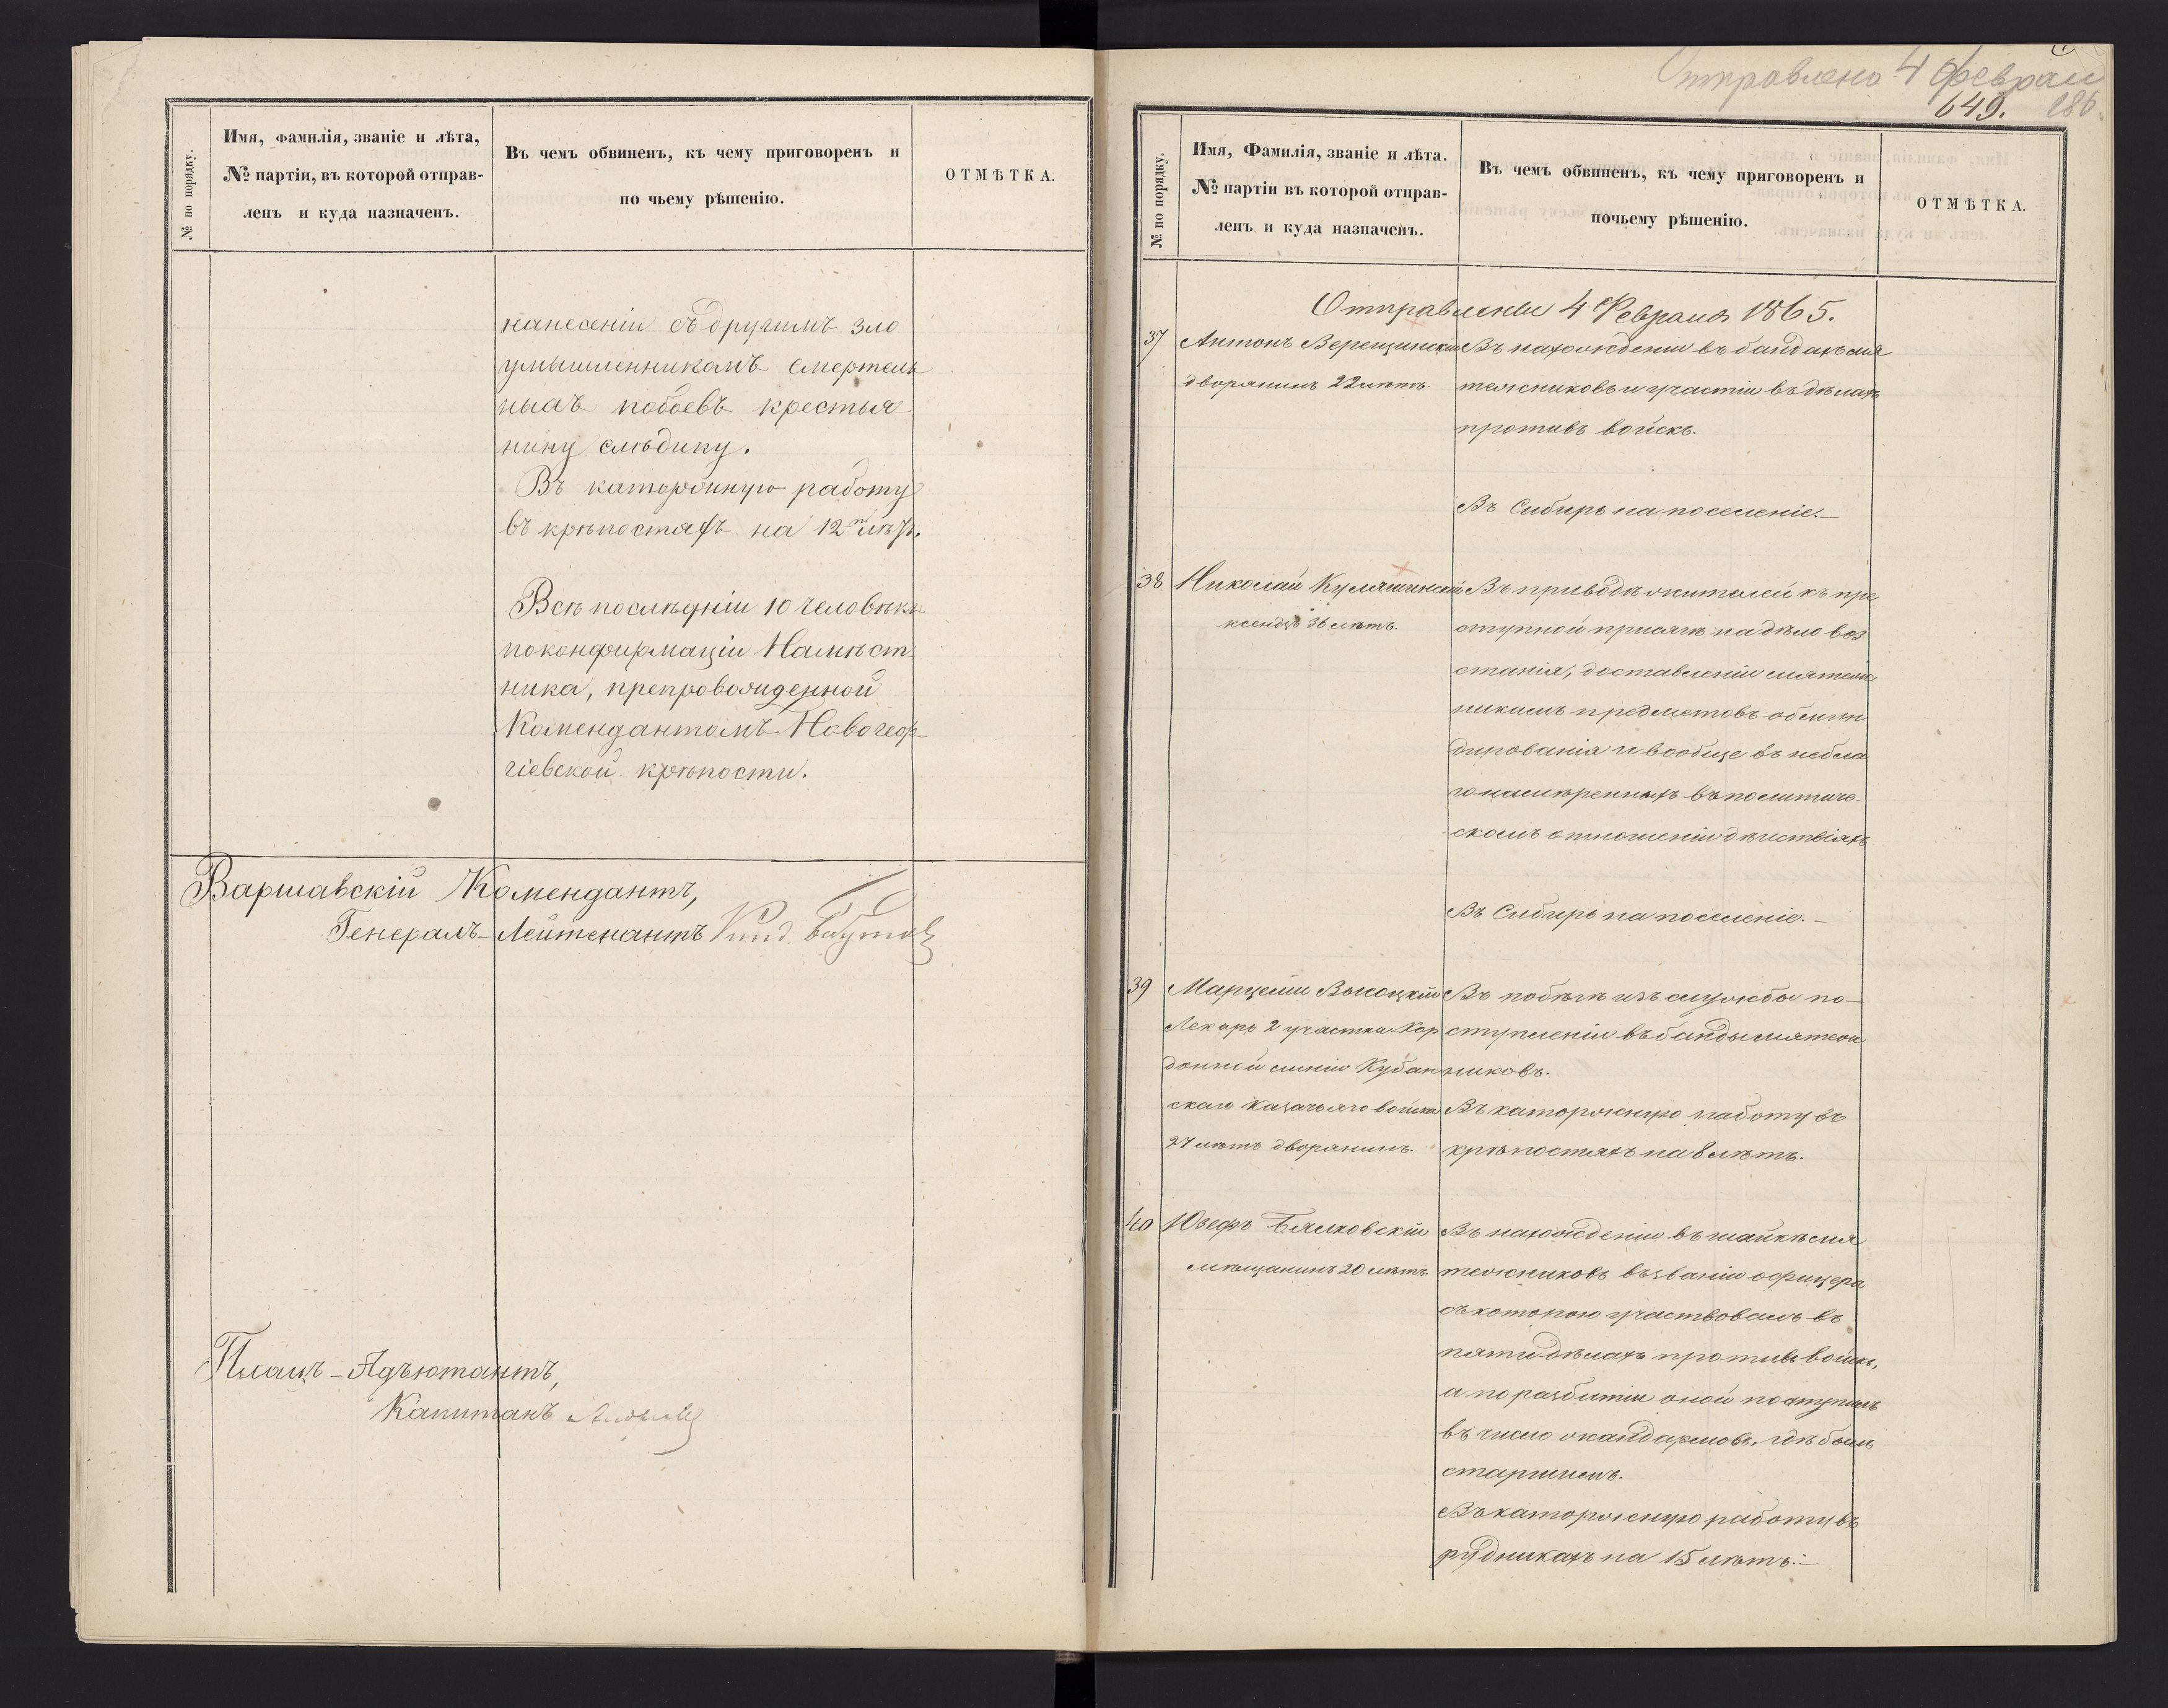 № по порядку.
Имя, фамилія, званіе и лѣта,
№ партіи, въ которой отправ-
ленъ и куда назначенъ.
Въ чемъ обвиненъ, къ чему приговоренъ и
по чьему рѣшенію.
ОТМѢТКА.
нанесеніи съ другимъ зло
умышленникомъ смертель
ныхъ побоевъ крестья
нину Слѣдику.
Въ каторжную работу
въ крѣпостяхъ на 12ть лѣтъ.
Всѣ послѣдніи 10 человѣкъ
по конфирмаціи Намѣст-
ника, препровожденной
Комендантомъ Новогеор-
гіевской крѣпости.
Варшавскій Комендантъ,
Генералъ-Лейтенантъ
Плацъ-Адъютантъ,
Капитанъ
Отправлено 4 Феврали
649. 186
№ по порядку.
Имя, Фамилія, званіе и лѣта.
№ партіи въ которой отправ-
ленъ и куда назначенъ.
Въ чемъ обвиненъ, къ чему приговоренъ и
почьему рѣшенію.
ОТМѢТКА.
Отправлены 4 Февраля 1865.
37 Антонъ Верещинскій Въ нахожденіи въ бандахъ мя
дворянинъ 22 лѣтъ. тежниковъ и участіи въ дѣлахъ
противъ войскъ.
Въ Сибирь на поселеніе.—
38 Николай Кулашинскій Въ приводѣ жителей къ пре
ксендзъ 36 лѣтъ. ступной присягѣ на дѣло воз
станія, доставленіи мятеж
никамъ предметовъ обмун
дированія и вообще въ небла
гонамѣренныхъ въ политиче-
скомъ отношеніи дѣйствіяхъ
Въ Сибирь на поселеніе.—
39 Марцелій Высоцкій Въ побѣгѣ изъ службы по-
Лекарь 2 участка Кор ступленіи въ банды мятеж
донной линіи Кубан никовъ.
скаго казачьяго войска Въ каторжную работу въ
27 лѣтъ дворянинъ. крѣпостяхъ на 8 лѣтъ.
40 Юзефъ Бялковскій Въ нахожденіи въ шайкѣ мя
мѣщанинъ 20 лѣтъ. тежниковъ въ званіи офицера
съ которою участвовалъ въ
пяти дѣлахъ противъ войскъ,
а по разбитіи оной поступилъ
въ число жандармовъ, гдѣ былъ
старшимъ.
Въ каторжную работу въ
рудникахъ на 15 лѣтъ.—